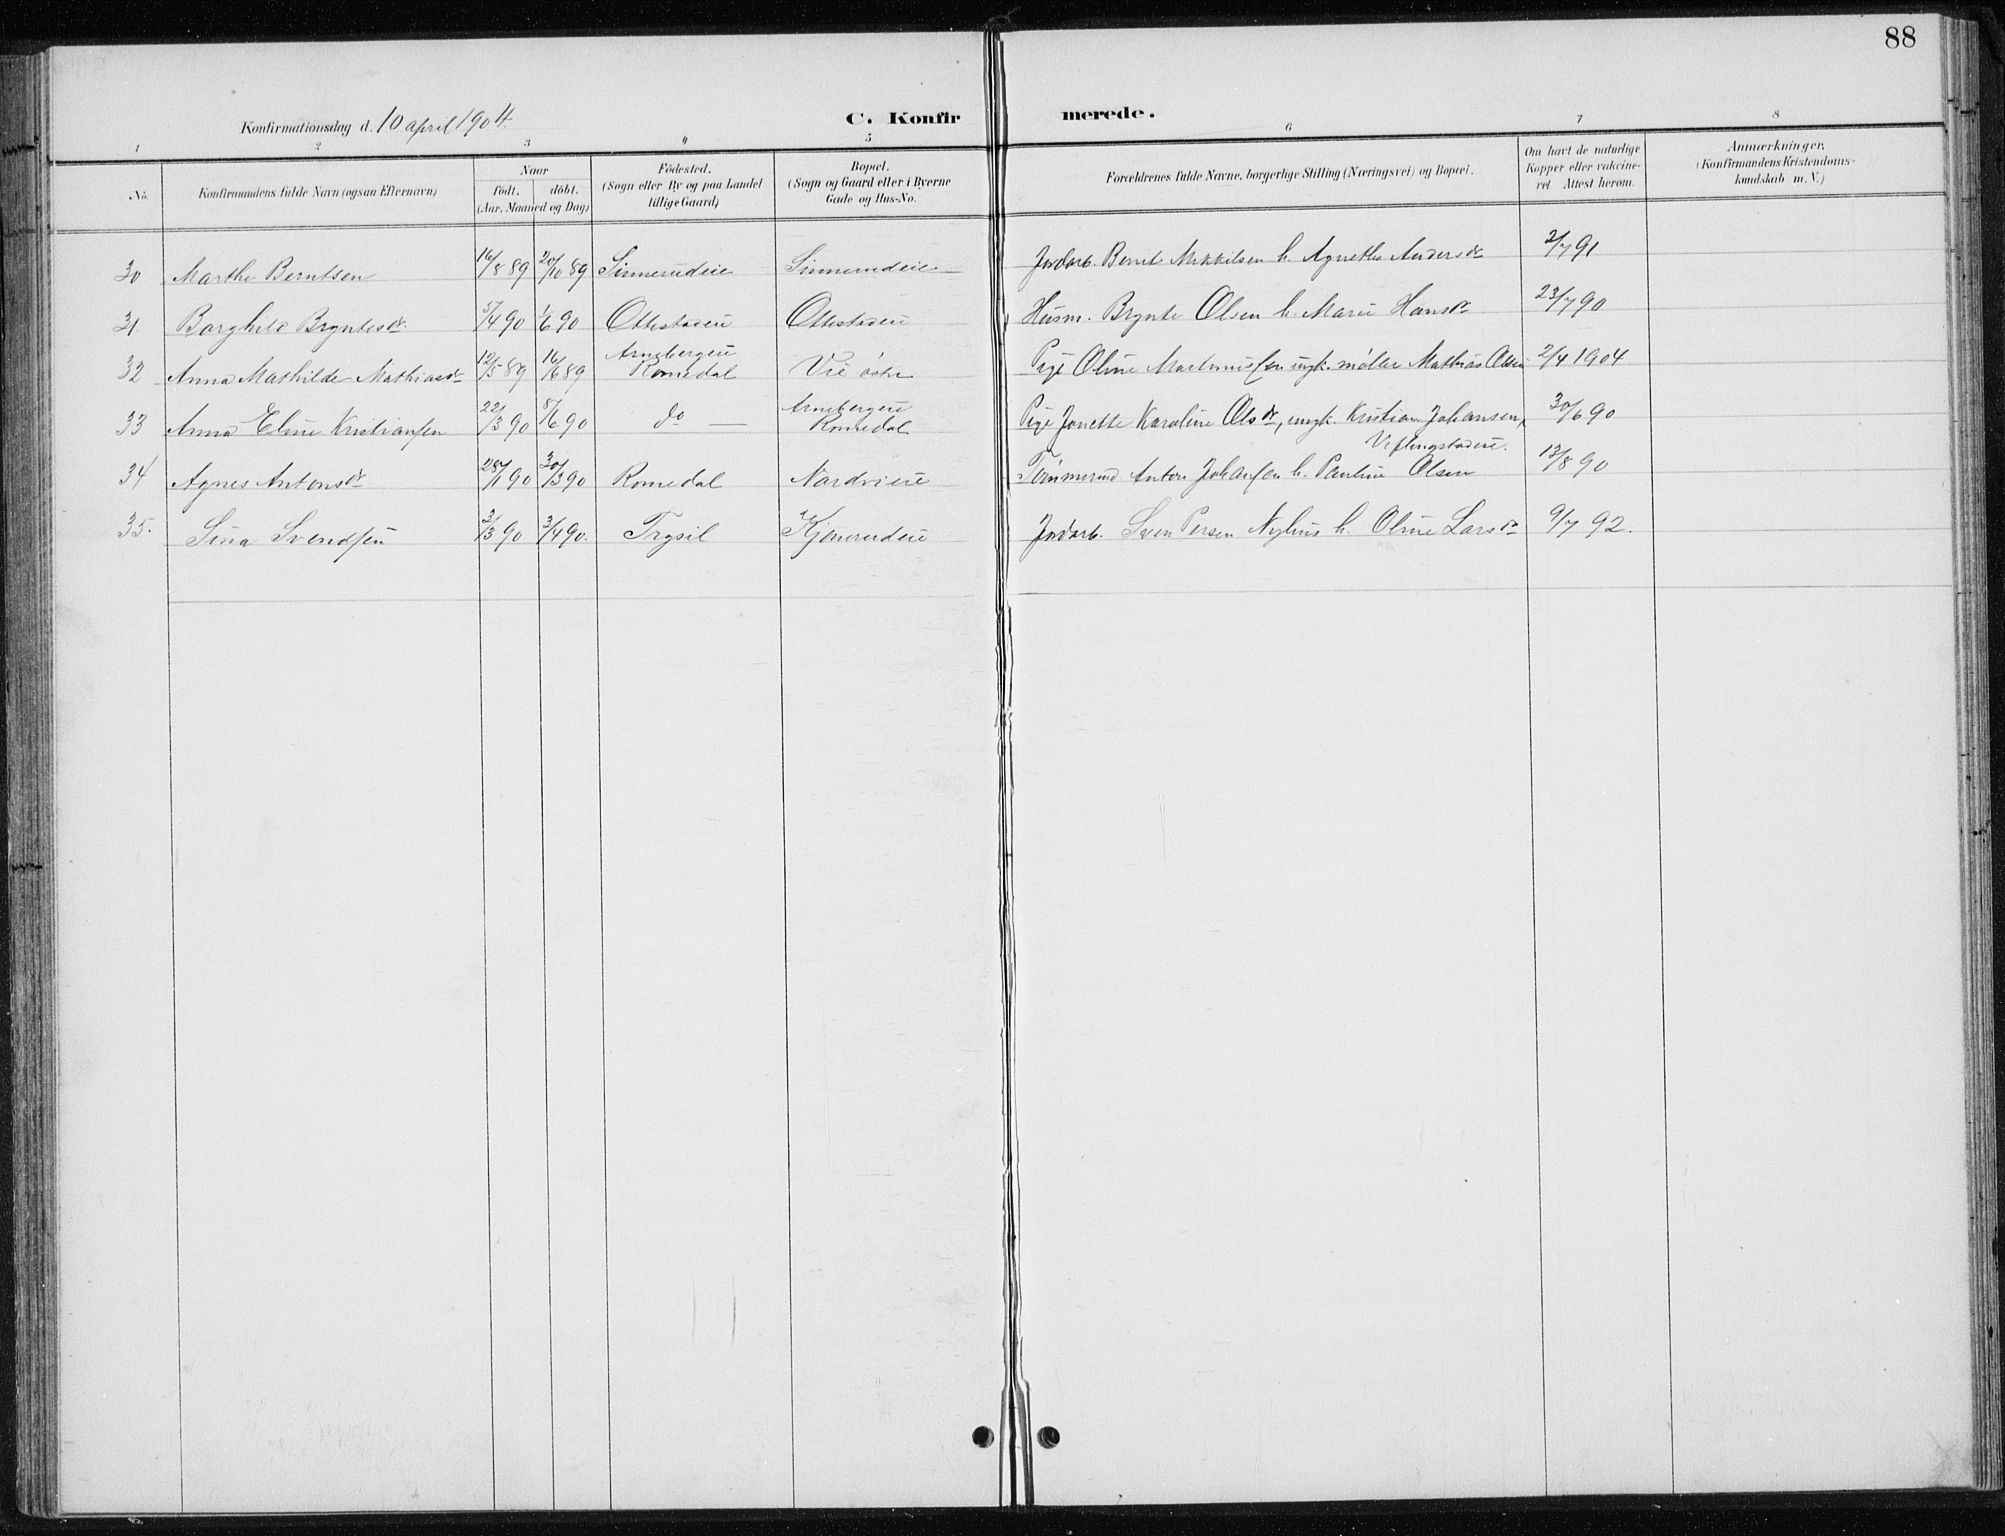 88
Konfirmationsdag d. 10 april 1904.
C. Konfirmerede.
1 2 3 4 5 6 7 8
No.
Konfirmandens fulde Navn (ogsaa Efternavn)
Naar
født. døbt.
(Aar, Maaned og Dag)
Fødested.
(Sogn eller By og paa Landet
tillige Gaard)
Bopæl.
(Sogn og Gaard eller i Byerne
Gade og Hus-No.
Forældrenes fulde Navne, borgerlige Stilling (Næringsvei) og Bopæl.
Om havt de naturlige
Kopper eller vakcine-
ret Attest herom.
Anmærkninger,
(Konfirmandens Kristendoms-
kundskab m. V.)
30 Marthe Berntsen 16/8 89 20/10 89 Sinnerudeie Sinnerudeie Jordarb. Bernt Mikkelsen h. Agnethe Andersdr 2/7 91
31 Borghild Bryntesdr. 5/4 90 1/6 90 Ottestadeie Ottestadeie Husm. Brynte Olsen h. Marie Hansdr 23/7 90
32 Anna Mathilde Mathiasdr 12/5 89 16/6 89 Arnebergeie Romedal Vie østre Pige Oline og ungk. møller Mathias Olsen 2/4 1904
33 Anna Eline Kristiansen 22/3 90 8/6 90 do — Arnebergeie Romedal Pige Jonette Karoline Olsdr, ungk. Kristian Johansen, 30/6 90
34 Agnes Antonsdr 28/1 90 30/3 90 Romedal Nordvieie Tømmermd Anton Johansen h. Pauline Olsen 13/8 90
35. Sina Svendsen 2/3 90 3/4 90. Trysil Kjønerudeie Jordarb. Sven Persen Nyhus h. Oline Larsdr 9/7 92.